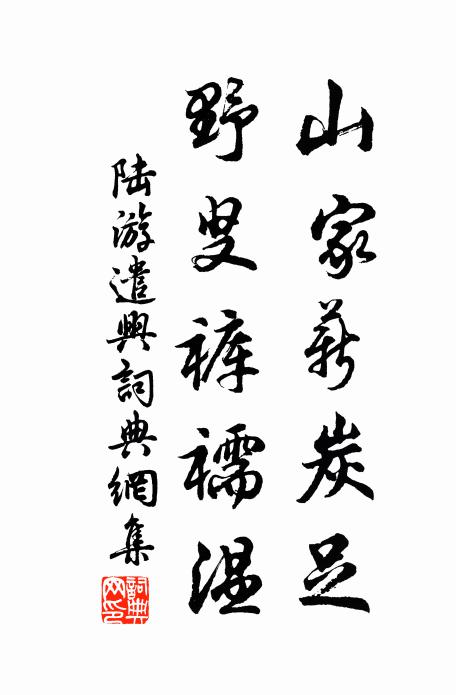 山家薪炭足
野叟裤襦温
陆游遣興詞典網集
詞典网印